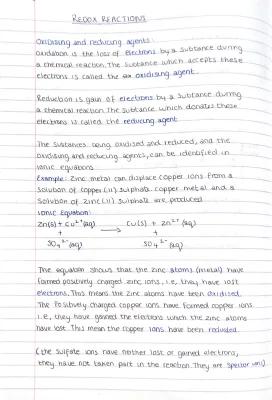 REDOX REACTIONS
Oxidising and reducing agents:
Oxidation is the loss of electrons by a substance during
a chemical reaction. The substance which accepts these
electrons is called the oxidising agent.
Reduction is gain of electrons by a substance during
a chemical reaction. The substance which donates these
electrons is called the reducing agent.
The substances being oxidised and reduced, and the
oxidising and reducing agents, can be identified in
ionic equations.
Example: Zinc metal can displace copper ions from a
solution of copper(ii) sulphate. copper metal and a
solution of zinc(ii) sulphate are produced
Ionic Equation:
Zn(s) + Cu²⁺(aq) ⟶ Cu(s) + Zn²⁺(aq)
+ +
SO₄²⁻(aq) SO₄²⁻(aq)
The equation shows that the zinc atoms (metal) have
formed positively charged zinc ions, i.e, they have lost
electrons. This means the zinc atoms have been oxidised.
The positively charged copper ions have formed copper ions
i.e, they have gained the electrons which the zinc atoms
have lost. This mean the copper ions have been reduced.
(the sulfate ions have neither lost or gained electrons,
they have not taken part in the reaction. They are spector ions)